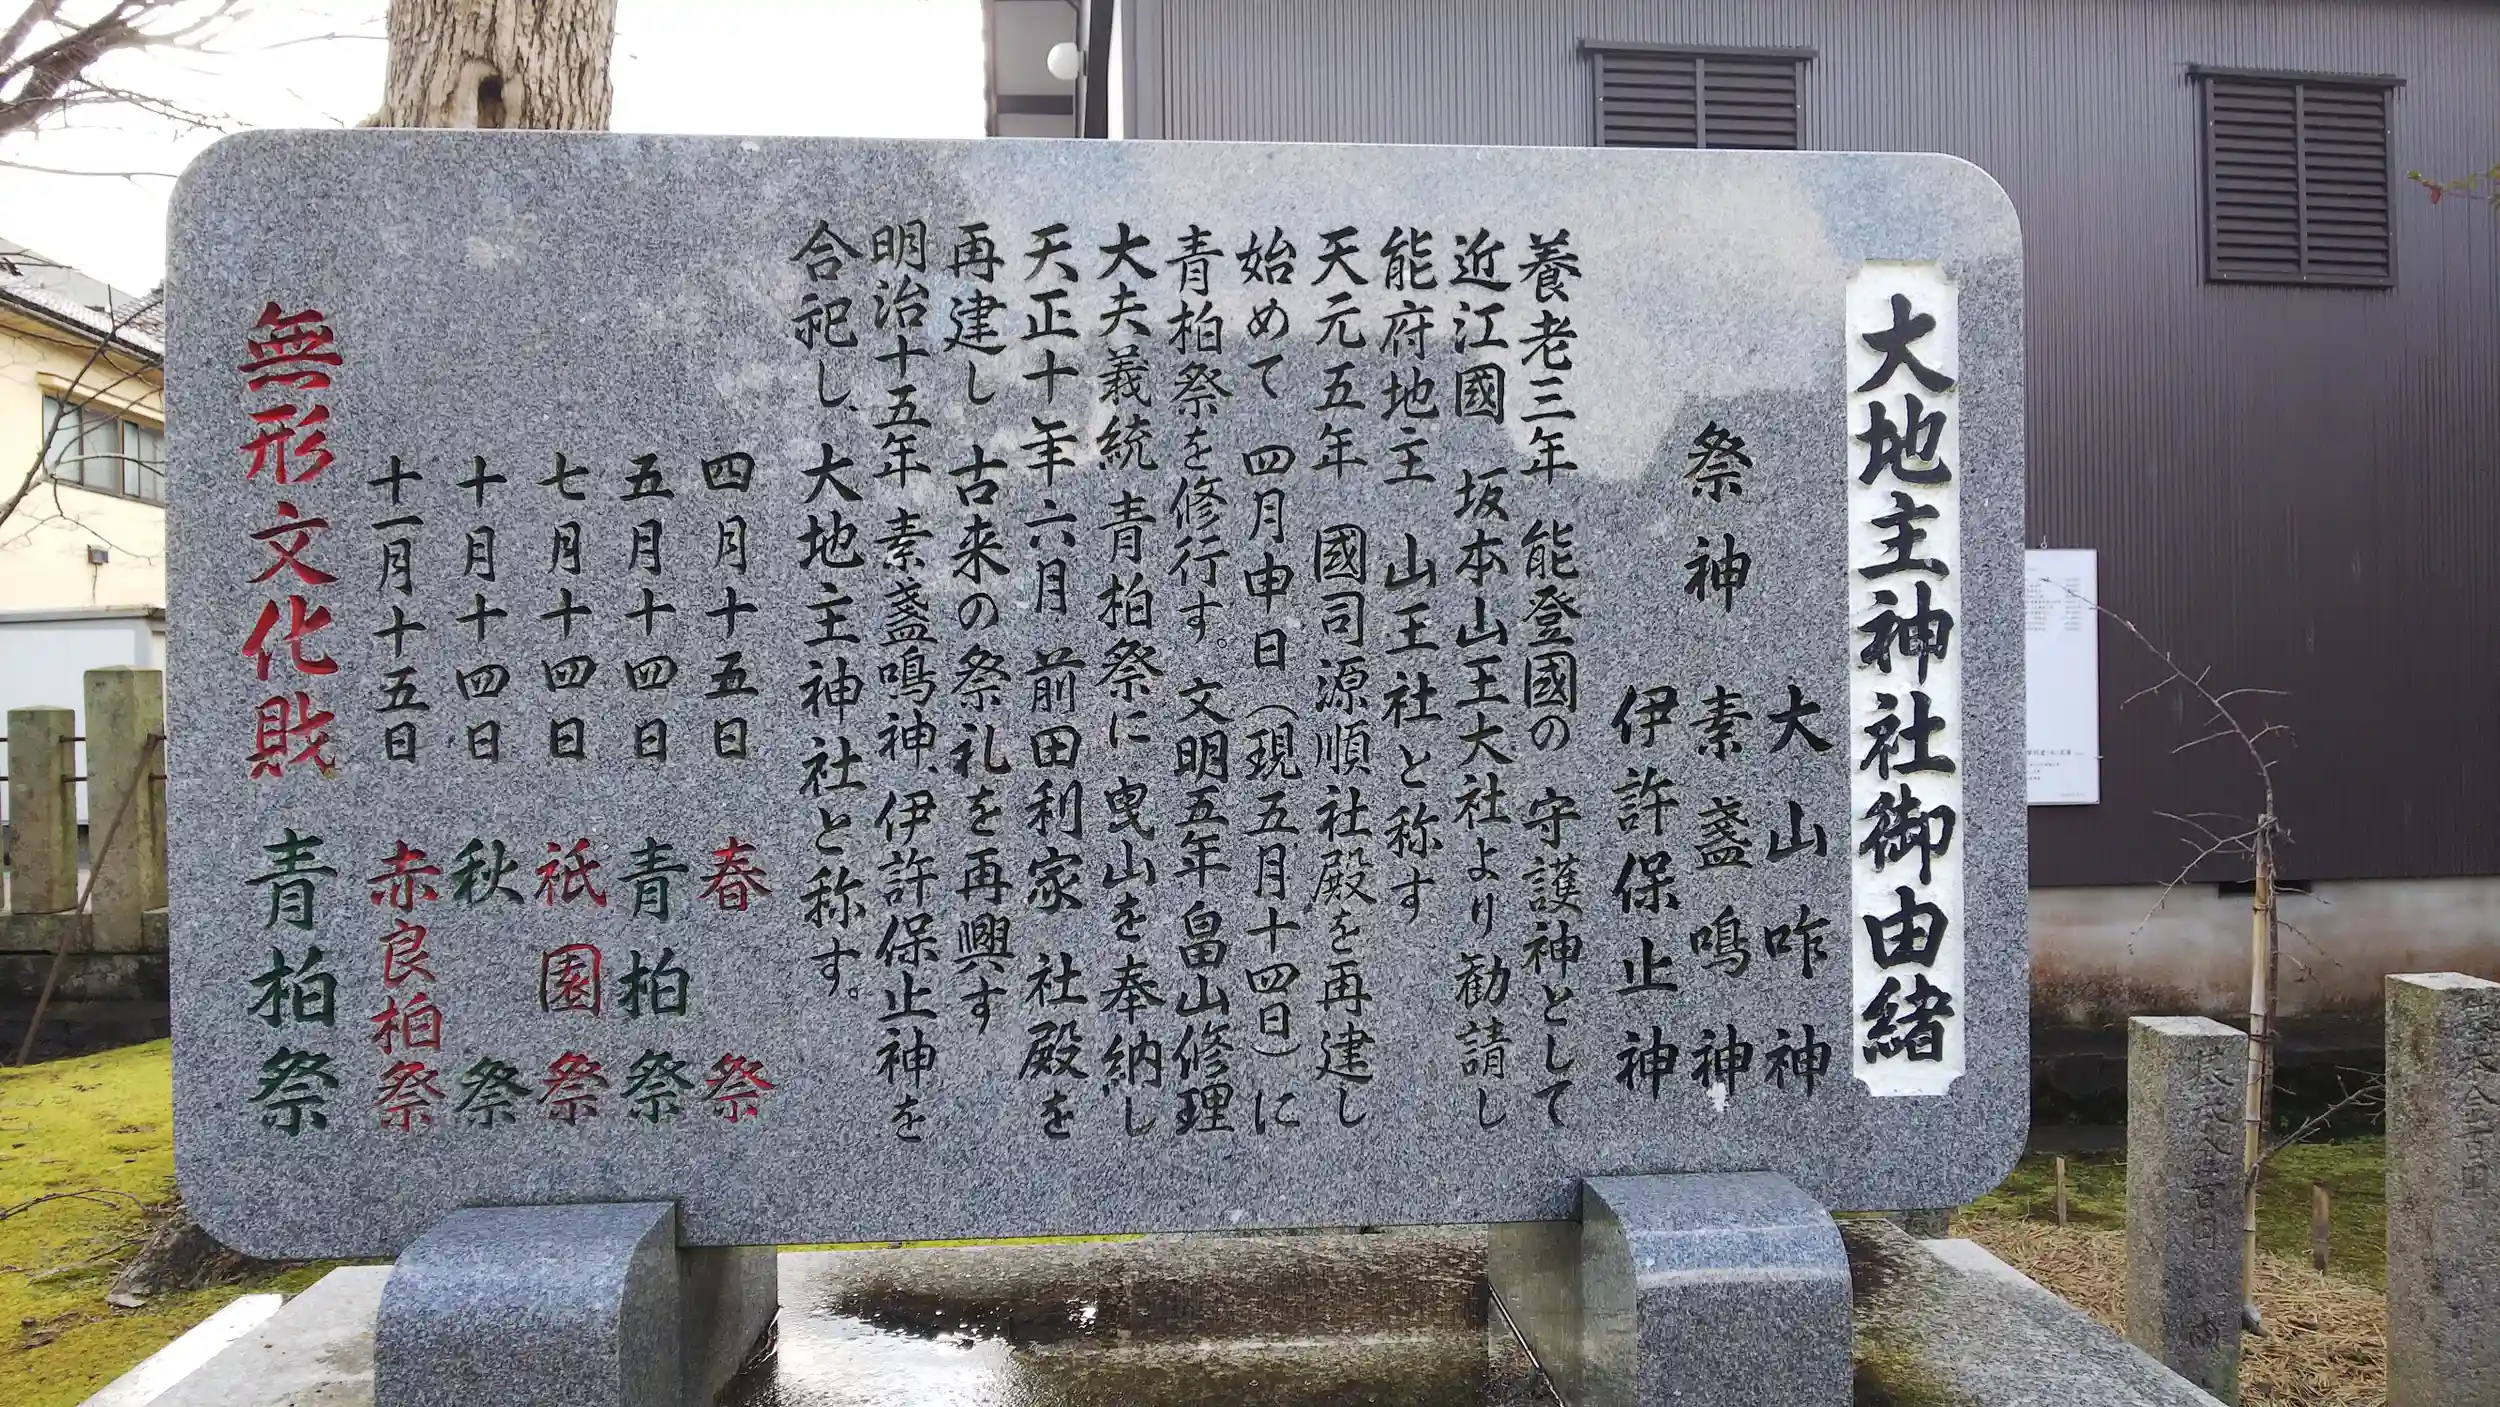 大地主神社御由緒
大山咋神
祭神 素盞鳴神
伊許保止神
養老三年 能登國の 守護神として
近江國 坂本山王大社より勧請し
能府地主 山王社と称す
天元五年 國司源順社殿を再建し
始めて 四月申日(現五月十四日)に
青柏祭を修行す。文明五年畠山修理
大夫義統 青柏祭に 曳山を奉納し
天正十年六月 前田利家 社殿を
再建し 古来の祭礼を再興す
明治十五年 素盞鳴神、伊許保止神を
合祀し、大地主神社と称す。
四月十五日 春祭
五月十四日 青柏祭
七月十四日 祇園祭
十月十四日 秋祭
十一月十五日 赤良柏祭
無形文化財 青柏祭